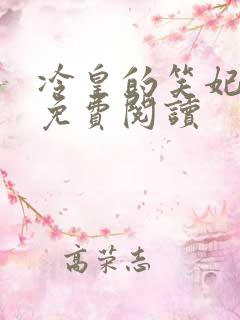 冷皇的笑妃
免費閱讀
高荣志